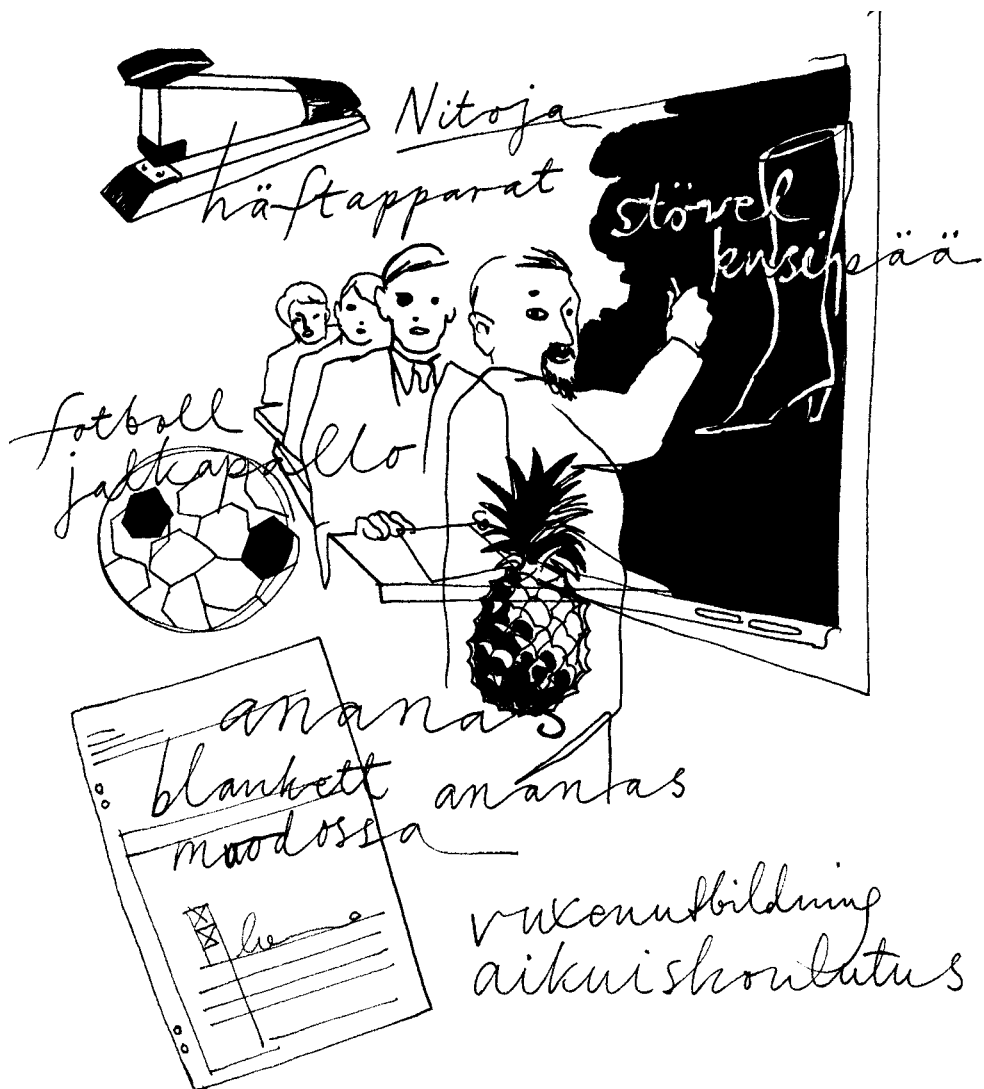 Nitoja
häftapparat
stövel
kusipää
fotboll
jalkapallo
ananas
blankett ananas
muodossa
vuxenutbildning
aikuiskoulutus